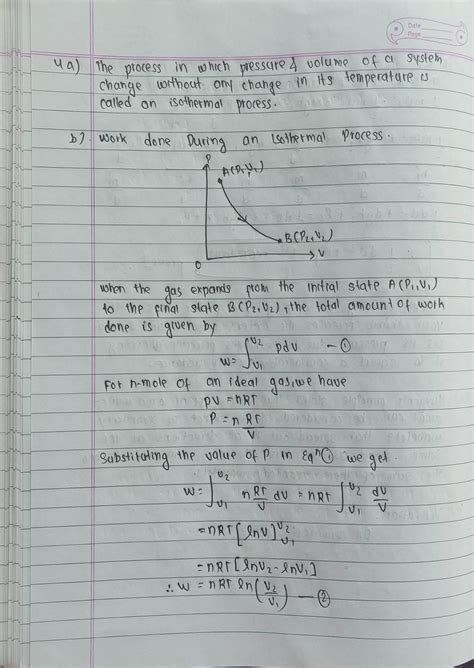 Date
Page
4 a) The process in which pressure & volume of a system
change without any change in its temperature is
called an isothermal process.
b) Work done During an Isothermal Process.
P
A(P1,V1)
B(P2,V2)
O
V
When the gas expands from the initial state A(P1,V1)
to the final state B(P2,V2), the total amount of work
done is given by
W= ∫V1^V2 PdV - ①
For n-mole of an ideal gas, we have
PV = nRT
P = n RT/V
Substitating the value of P in Eqn ① we get.
W= ∫V1^V2 n RT/V dV = nRT ∫V1^V2 dV/V
= nRT [lnV]V1^V2
= nRT [lnV2 - lnV1]
∴ W = nRT ln(V2/V1) - ②